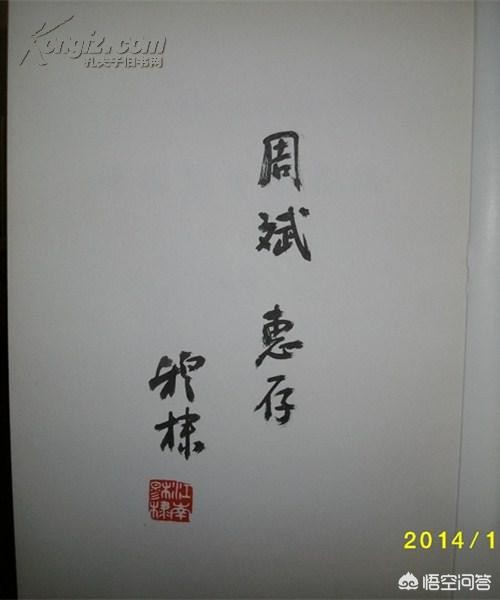 Kongfz.com
孔夫子旧书网
周斌 惠存
穆棣
江南
穆棣
2014/1
悟空问答